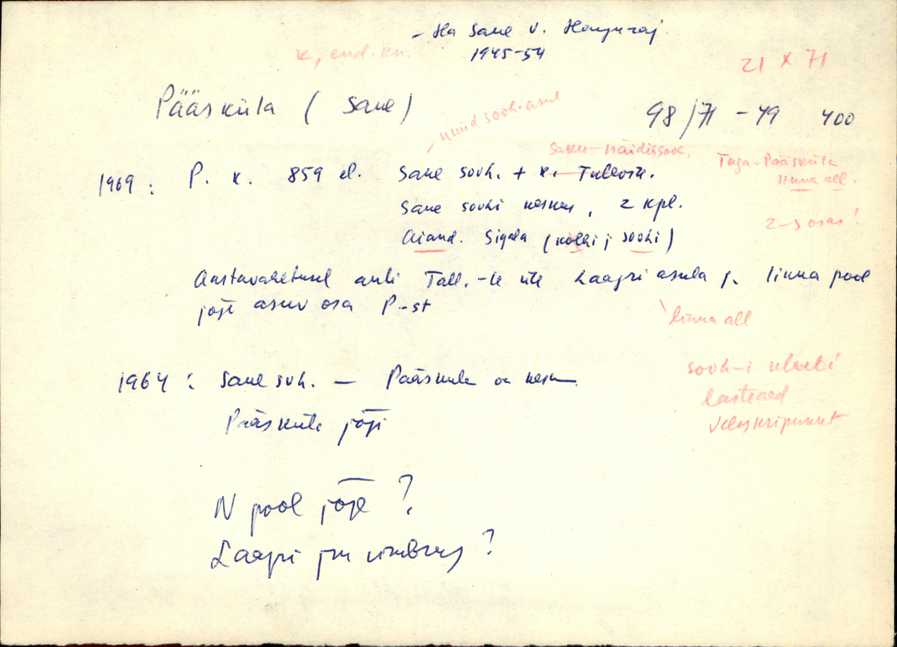 - Ha Saue v.
1945-54
k, end. kn.
21 X 71
Pääsküla ( Saue)
98/71 - 49 400
nüüd sovh. asul
Saku näidissovh.
Taga-Pääsküla
linna all.
1969 : P. k. 859 el. Saue sovh. + k.
Saue sovhi keskus, 2 kpl.
2-s osas!
Aiand. Sigala (kolhi j sovhi)
Aastavahetusel anti Tall.-le üle Laagri asula j. linna pool
jõge asuv osa P-st
linna all
sovh-i
lasteaed
velskripunkt
1964 : Saue svh. — Pääsküla on kesk
Pääsküla jõgi
N pool jõge ?
Laagri jm ümbrus ?